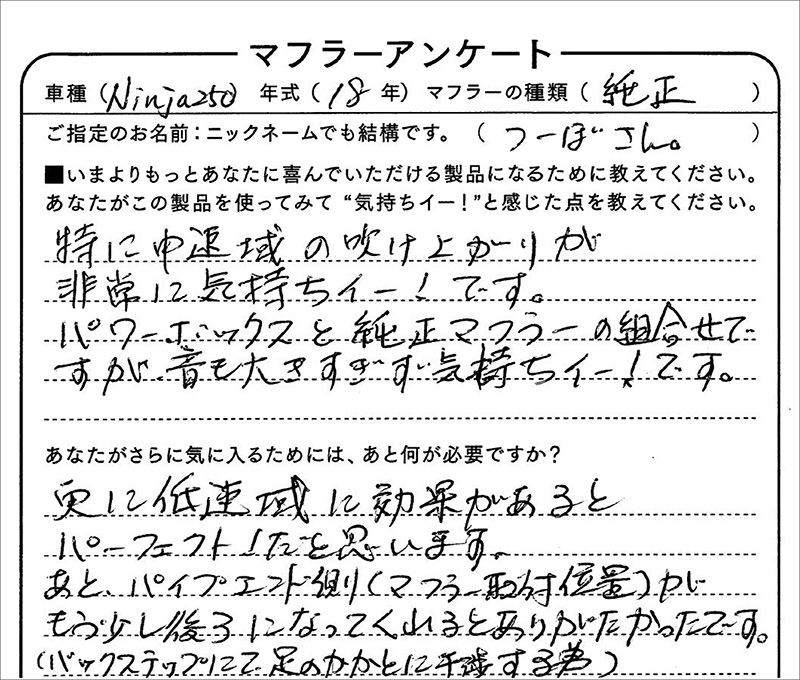 マフラーアンケート
車種（Ninja250） 年式（18年） マフラーの種類（ 純正 ）
ご指定のお名前：ニックネームでも結構です。（ つーぼさん。 ）
■いまよりもっとあなたに喜んでいただける製品になるために教えてください。
あなたがこの製品を使ってみて“気持ちイー！”と感じた点を教えてください。
特に中速域の吹け上がりが
非常に気持ちイー！です。
パワーボックスと純正マフラーの組合せで
すが、音も大きすぎず気持ちイー！です。
あなたがさらに気に入るためには、あと何が必要ですか？
更に低速域に効果があると
パーフェクト！だと思います。
あと、パイプエンド側（マフラー取付位置）が
もう少し後ろになってくれるとありがたかったです。
（バックステップにて足のかかとに干渉する為）